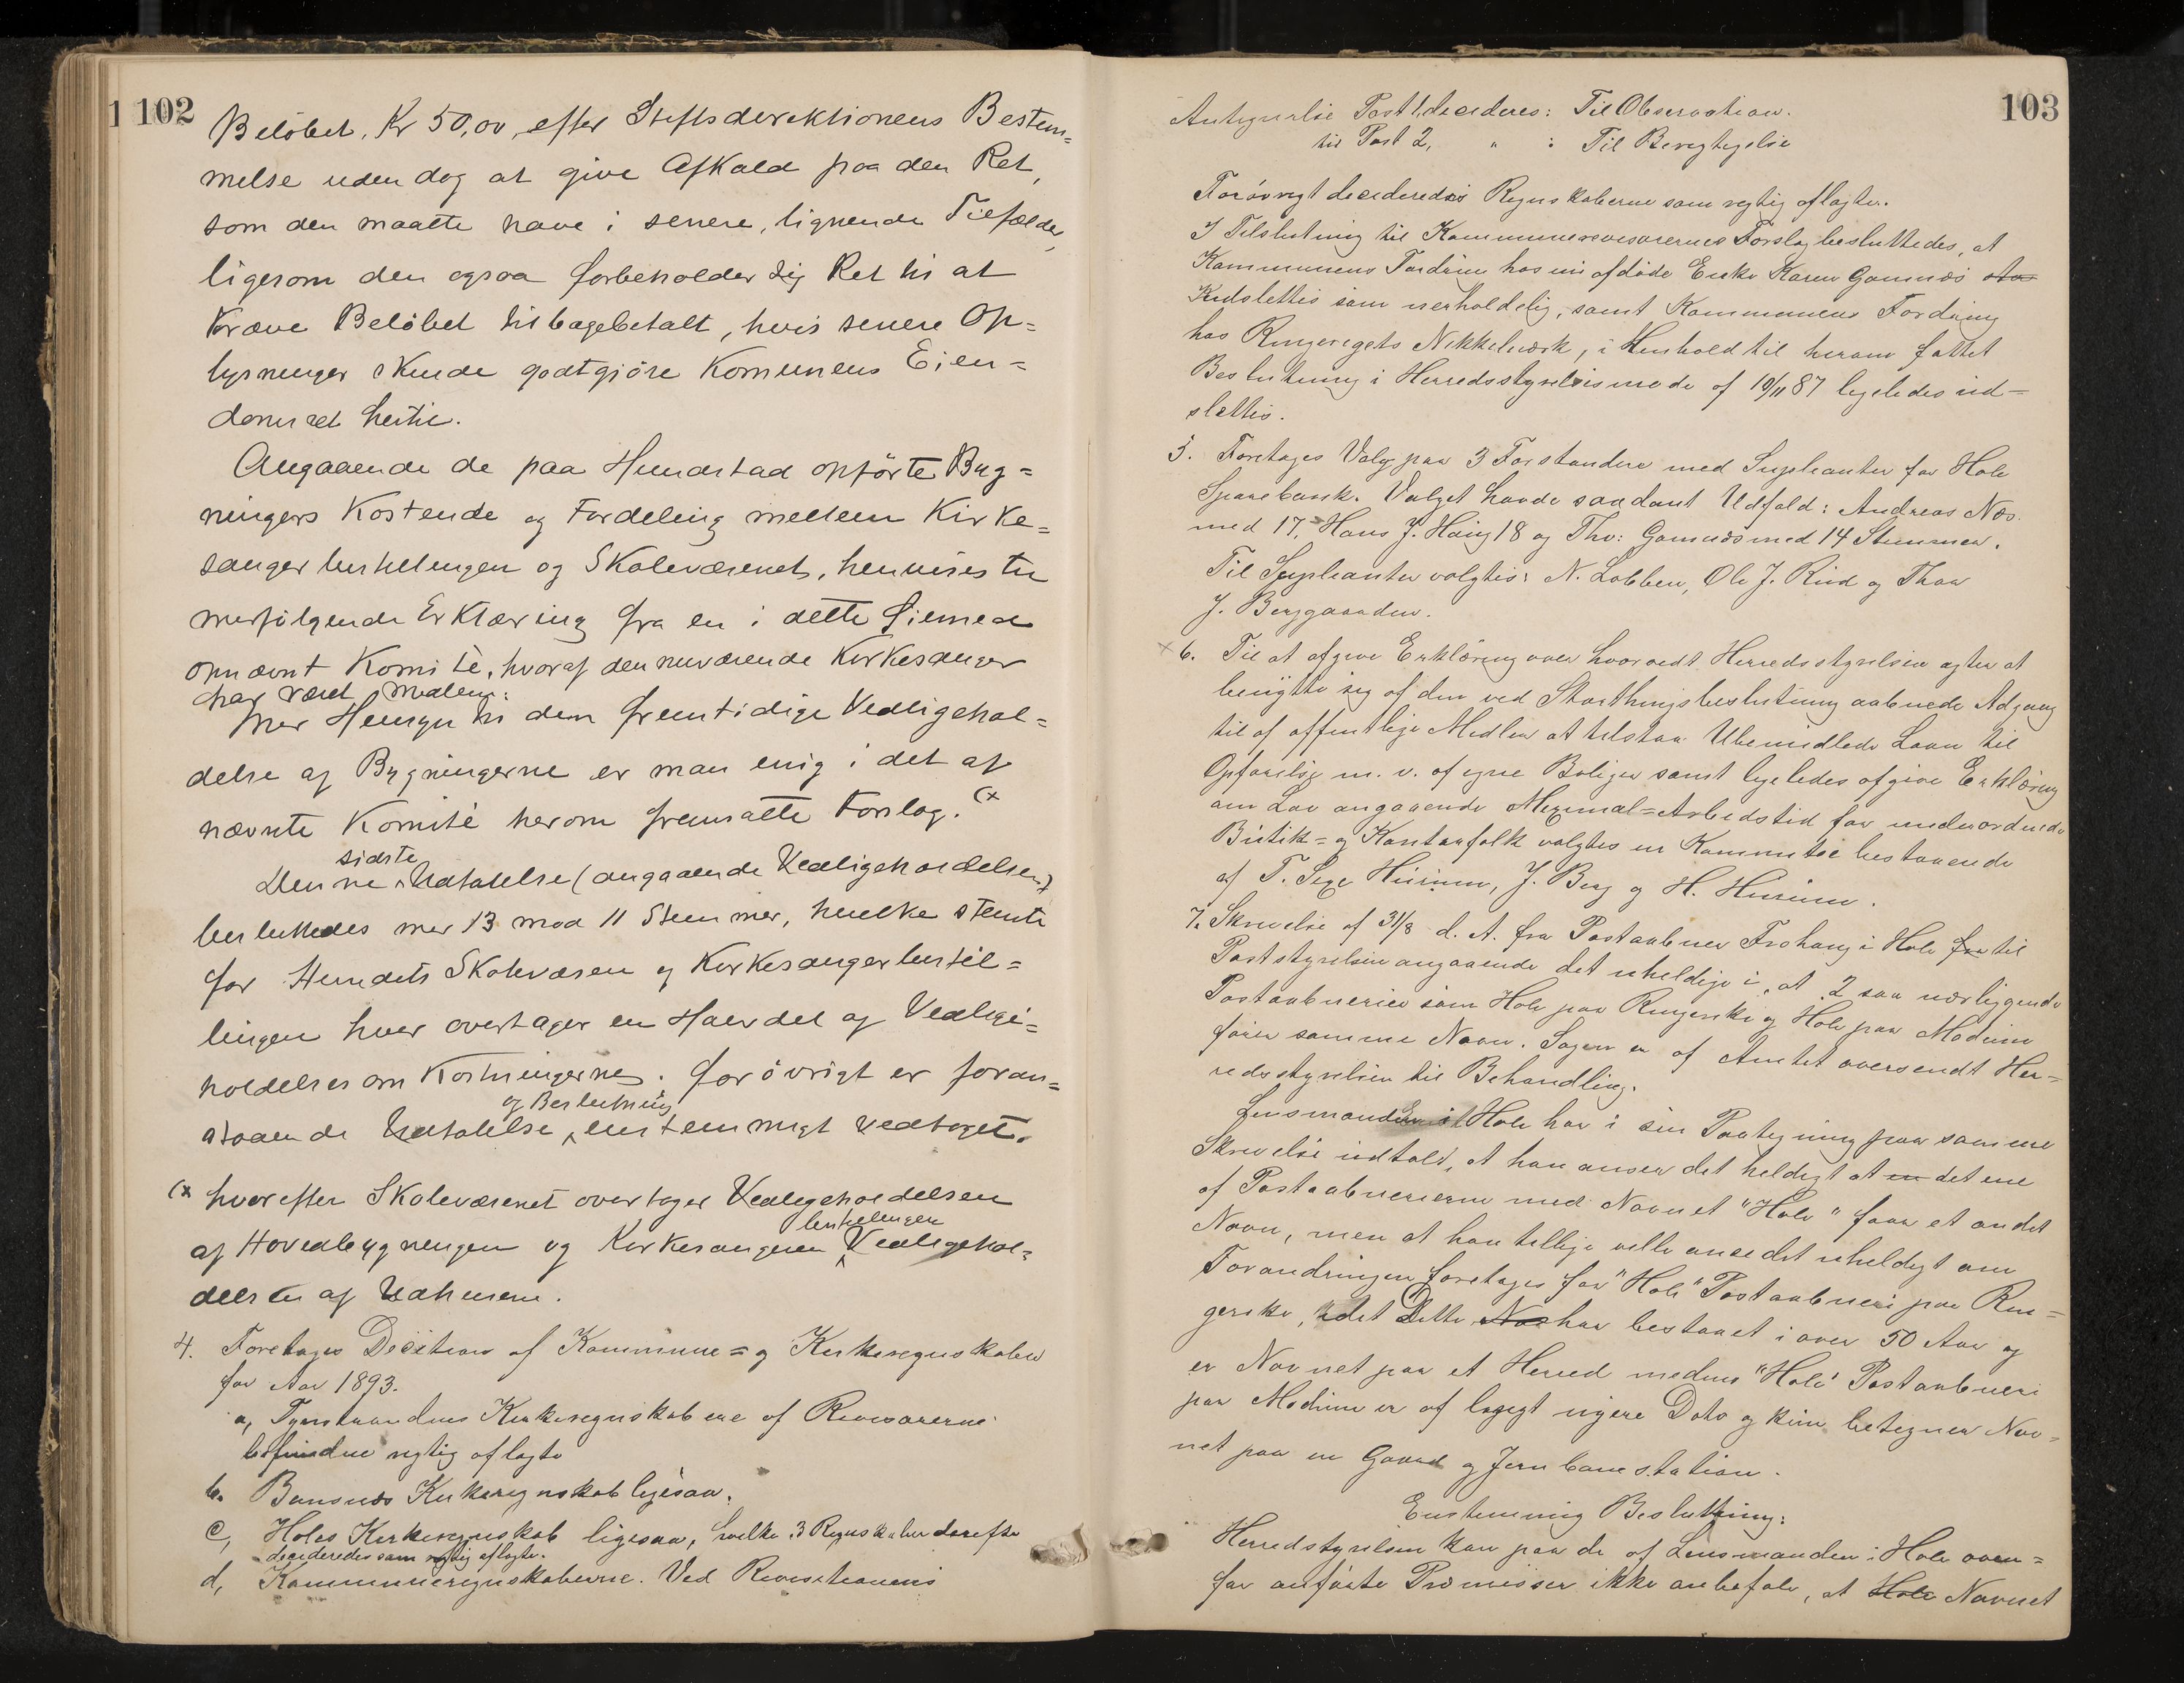 1 102
Beløbet, Kr 50,00, efter Stiftsdirektionens Bestem=
melse uden dog at give Afkald paa den Ret,
som den maatte have i senere, lignende Tilfælde,
ligesom den ogsaa forbeholder sig Ret til at
kræve Beløbet tilbagebetalt, hvis senere Op=
lysninger skulde godtgjøre Komunens Eien=
domsret hertil.
Angaaende de paa Hundstad opførte Byg=
ningers Kostende og Fordeling mellem Kirke=
sangerbestillingen og Skolevæsenet, henvises til
nærfølgende Erklæring fra en i dette Øiemed
opnævnt Komitè, hvoraf den nuværende Kirkesanger
har været Medlem:
Med Hensyn til den fremtidige Vedligehol=
delse af Bygningerne er man enig i det af
nævnte Komitè herom fremsatte Forslag. (x
sidste
Denne Udtalelse (angaaende Vedligeholdelsen)
besluttedes med 13 mod 11 Stemmer, hvilke stemte
for Herredets Skolevæsen og Kirkesangerbestil=
lingen hver overtager en Halvdel af Vedlige=
holdelsesomkostningerne. forøvrigt er foran=
og Beslutning
staaende Udtalelse enstemmigt vedtaget.
(x hvorefter Skolevæsenet overtager Vedligeholdelsen
bestillingen
af Hovedbygningen og Kirkesangeren Vedligehol=
delsen af Udhusene.
4. Foretages Decition af Kommune= og Kirkeregnskaber
for Aar 1893.
a, Tyristrandens Kirkeregnskab ere af Revisorerne
befundne rigtig aflagte
b. Bønsnæs Kirkeregnskab ligesaa.
c, Holes Kirkeregnskab ligesaa, hvilke 3 Regnskaber derefter
decideredes som rigtig aflagte.
d, Kommuneregnskaberne. Ved Revisionens
103
Antegnelse Post 1, decideres: Til Observation.
til Post 2, " : Til Berigtigelse
Forøvrigt decideredes Regnskaberne som rigtig aflagte.
I Tilslutning til Kommunerevisorernes Forslag besluttedes, at
Kommunens Fordring hos nu afdøde Enke Karen Gomnæs
Udslettes som uerholdelig, samt Kommunens Fordring
hos Ringeriges Nikkelværk, i Henhold til herom fattet
Beslutning i Herredsstyrelsesmøde af 10/11 87 ligeledes ud=
slettes.
5. Foretages Valg paa 3 Forstandere med Supleanter for Hole
Sparebank. Valget havde saadant Udfald: Andreas Næs
med 17, Hans J. Høug 18 og Thv: Gomnæs med 14 Stemmer.
Til Supleanter valgtes: N. Lobben, Ole J. Rud og Thor
J. Berggaarden.
x 6. Til at afgive Erklæring over hvorvidt Herredsstyrelsen agter at
benytte sig af den ved Storthingsbeslutning aabnede Adgang
til af offentlige Midler at tilstaa Ubemidlede Laan til
Opførelse m. v. af egne Boliger samt ligeledes afgive Erklæring
om Lov angaaende Maximal=Arbeidstid for underordnede
Butik= og Kontorfolk valgtes en Kommitee bestaaende
af T. Sexe Hurum, J. Berg og H. Hurum.
7. Skrivelse af 31/8 d. A. fra Postaabner Frohaug i Hole fra til
Poststyrelsen angaaende det uheldige i, at 2 saa nærliggende
Postaabnerier som Hole paa Ringerike og Hole paa Modum
fører samme Navn. Sagen er af Amtet oversendt Her=
redsstyrelsen til Behandling.
Lensmanden i Hole har i sin Paategning paa samme
Skrivelse udtalt, at han anser det heldigt at en det ene
af Postaabnerierne med Navnet "Hole" faar et andet
Navn, men at han tillige vilde anse det uheldigt om
Forandringen foretages for "Hole" Postaabneri paa Rin=
gerike, idet Dette Nav har bestaaet i over 50 Aar og
er Navnet paa et Herred medens "Hole" Postaabneri
paa Modum er af langt nyere Dato og kun betegner Nav=
net paa en Gaard og Jernbanestation.
Enstemmig Beslutning:
Herredstyrelsen kan paa de af Lensmanden i Hole oven=
for anførte Præmisser ikke anbefale, at Hole Navnet